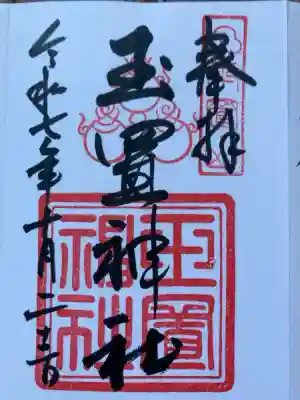 奉拝
玉置神社
令和七年十月二十六日
玉置
神社